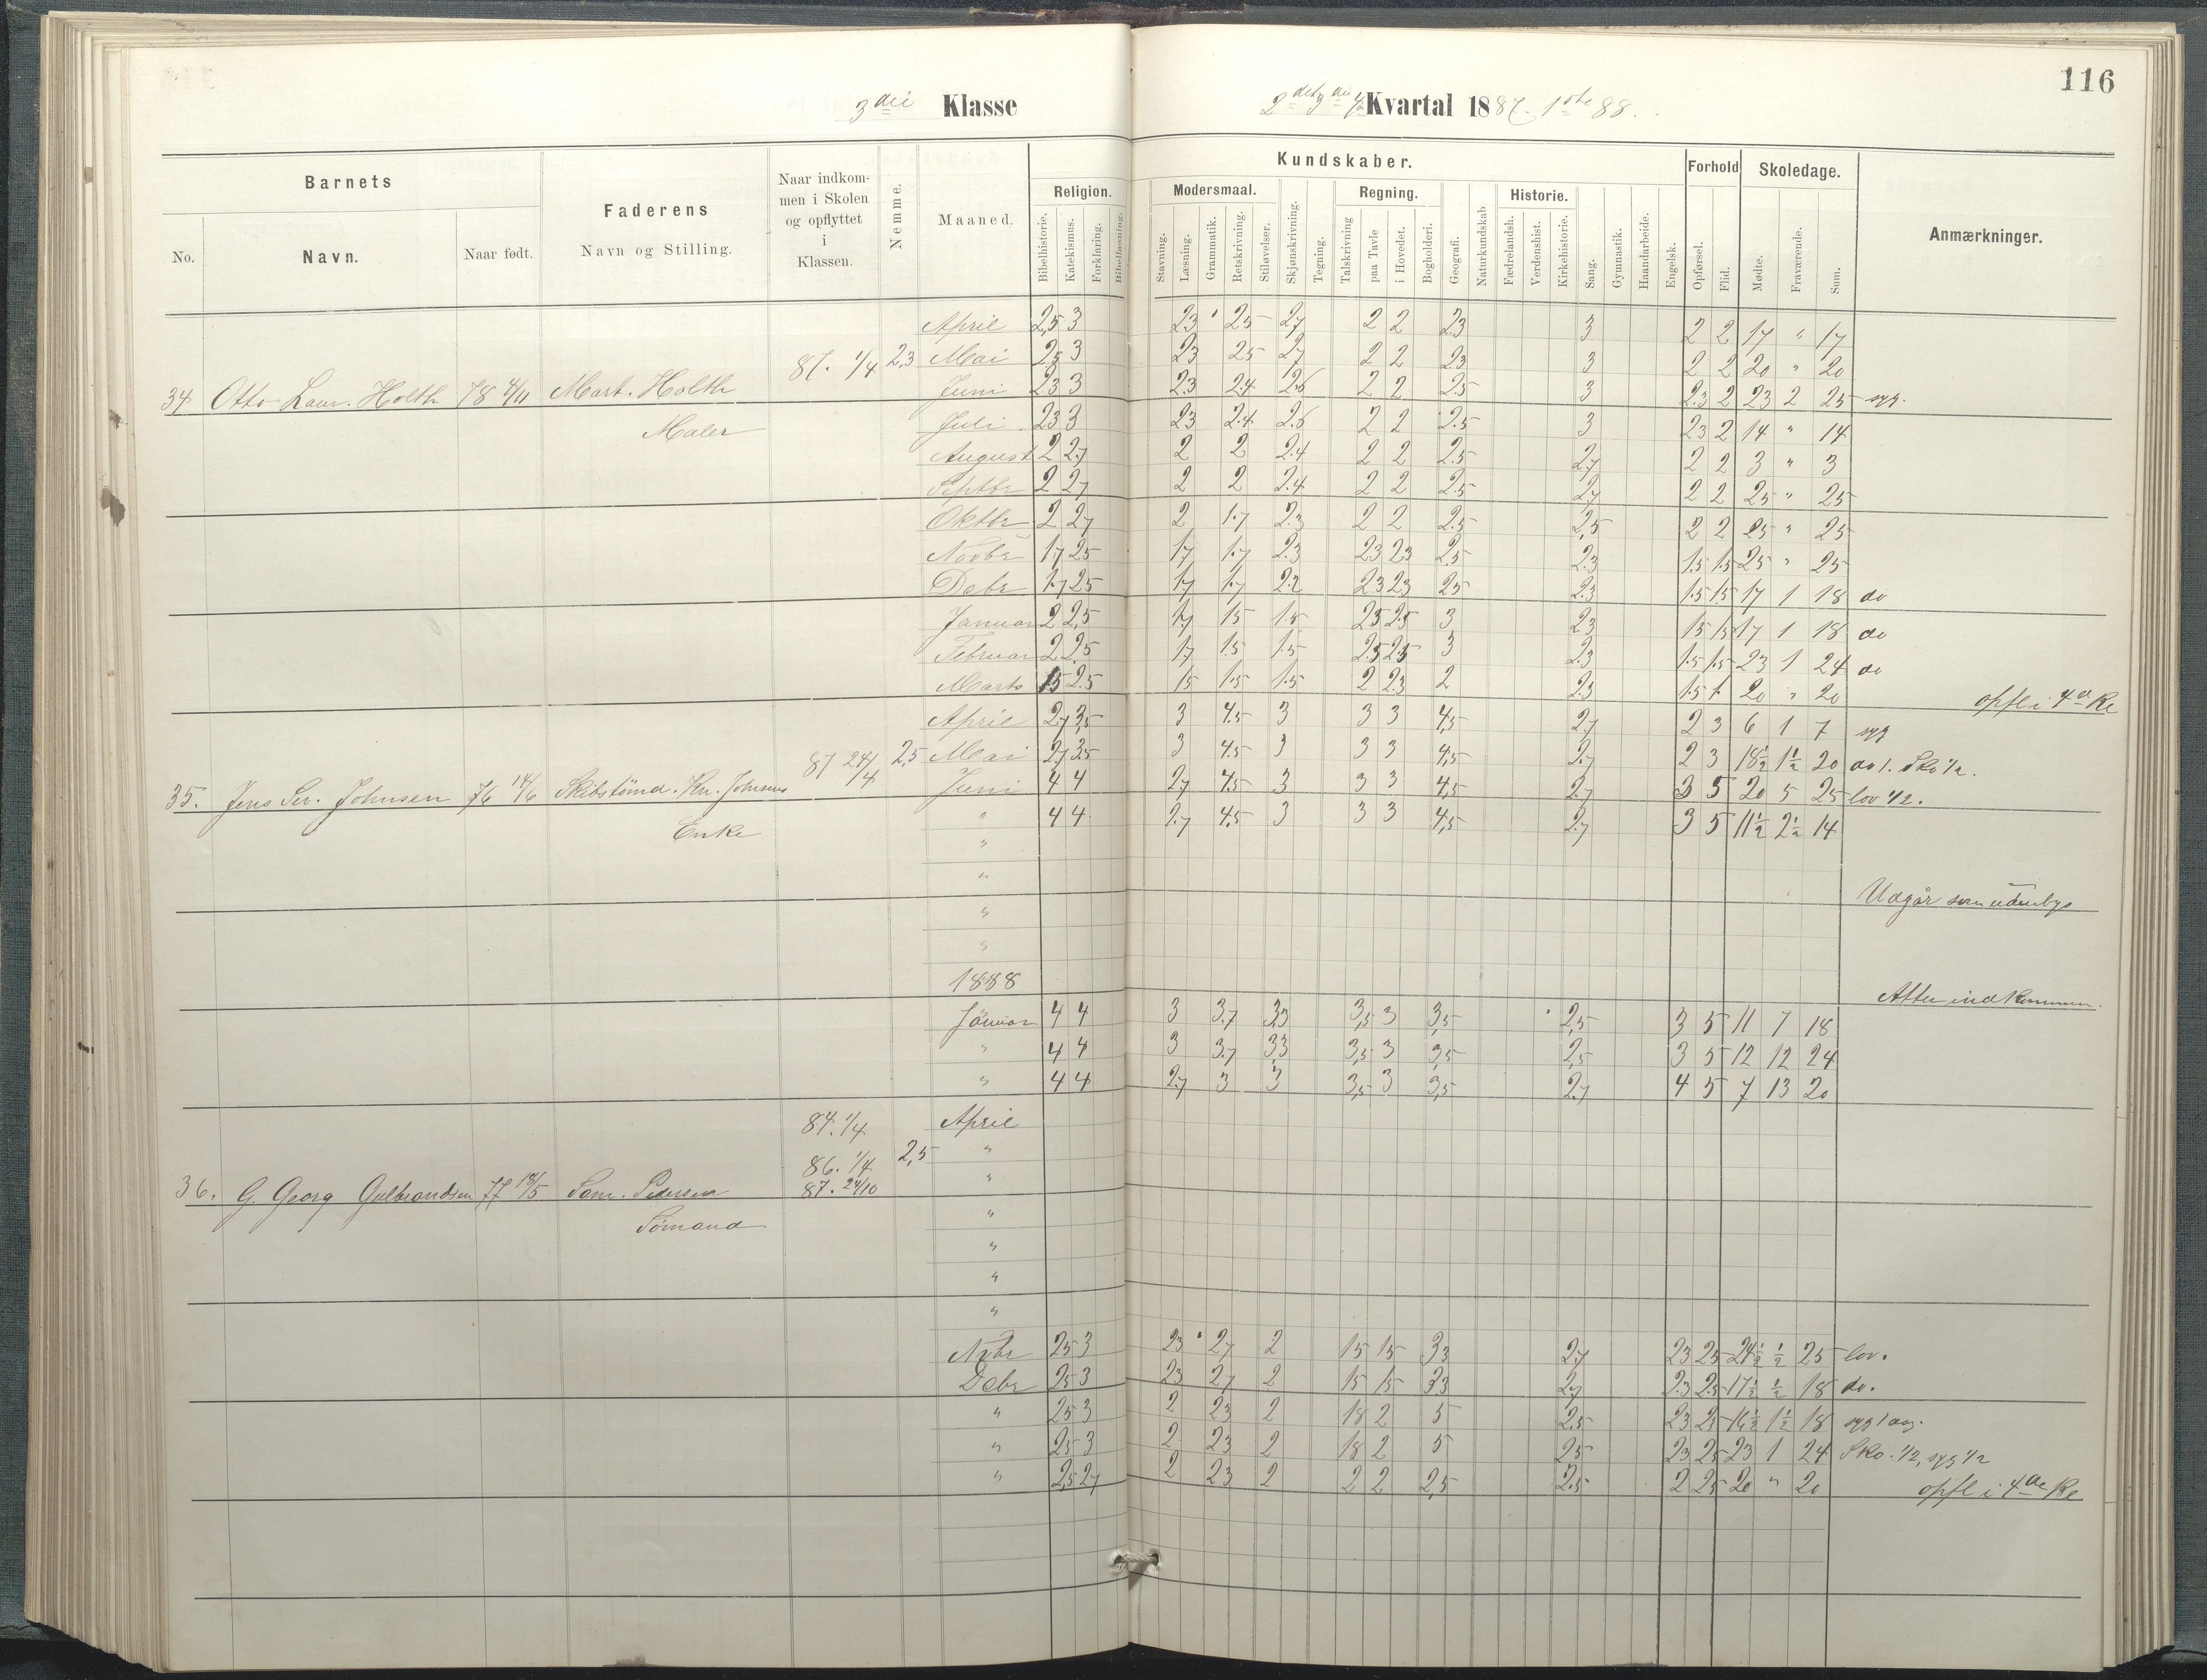 116
3die Klasse
2det 3die 4 Kvartal 1887. 1ste 88.
Barnets
Faderens
Naar indkommen i Skolen og opflyttet i Klassen.
Nemme.
Maaned.
Kundskaber.
Forhold
Skoledage.
Anmærkninger.
No. Navn. Naar født. Navn og Stilling.
Religion. Modersmaal. Regning. Historie.
Bibelhistorie. Katekismus. Forklaring. Bibellæsning. Stavning. Læsning. Grammatik. Retskrivning. Stiløvelser. Skjønskrivning. Tegning. Talskrivning paa Tavle i Hovedet. Bogholderi. Geografi. Naturkundskab Fædrelandsh. Verdenshist. Kirkehistorie. Sang. Gymnastik. Haandarbeide. Engelsk. Opførsel. Flid. Mødte. Fraværende. Sum.
April 2,5 3 23 25 27 2 2 23 3 2 2 17 " 17
87. 1/4 2,3 Mai 25 3 23 25 27 2 2 2.3 3 2 2 20 " 20
34 Otto Laur. Holth 78 4/11 Mart. Holth Juni 23 3 23 2.4 2.6 2 2 2.5 3 2.3 2 23 2 25 syg.
Maler Juli 23 3 23 2.4 2.6 2 2 2.5 3 23 2 14 " 14
August 2 2.7 2 2 2.4 2 2 2.5 2.7 2 2 3 " 3
Septbr 2 27 2 2 2.4 2 2 2.5 2.7 2 2 25 " 25
Oktbr 2 27 2 1.7 2.3 2 2 2.5 2,5 2 2 25 " 25
Novbr 1.7 25 17 1.7 2.3 23 23 2,5 2.3 15 1.5 25 " 25
Debr 1.7 25 17 1.7 2.2 23 23 25 2.3 1.5 1.5 17 1 18 do
Januar 2 2,5 1.7 15 1.5 25 2.5 3 23 15 15 17 1 18 do
Februar 2 2.5 17 1.5 1.5 2.5 2.5 3 2.3 1.5 1.5 23 1 24 do
Marts 15 2.5 15 1.5 1.5 2 2.3 2 2.3 1.5 1. 20 " 20 opfl i 4de Kl
April 2,7 3,5 3 4.5 3 3 3 4,5 2.7 2 3 6 1 7 syg
87 24/4 2,5 Mai 2,7 3.5 3 4.5 3 3 3 4,5 2.7 2 3 18½ 1½ 20 do 1. Sko ½.
35. Jens Sev. Johnsen 76 14/6 Skibstømd. Kn. Johnsens Juni 4 4 2.7 4.5 3 3 3 4,5 2.7 3 5 20 5 25 lov ½.
Enke " 4 4 2.7 4.5 3 3 3 4,5 2.7 3 5 11½ 2½ 14
"
"
Udgår som udenbys
"
"
1888
Atter indkommen.
Januar 4 4 3 3.7 3,3 3,5 3 3,5 2,5 3 5 11 7 18
" 4 4 3 3.7 3,3 3,5 3 3,5 2,5 3 5 12 12 24
" 4 4 2.7 3 3 3,5 3 3,5 2.7 4 5 7 13 20
84. 1/4 April
86. 1/4 2,5 "
36. G. Georg Gulbrandsen 77 19/5 Sam. Pedersen 87. 24/10 "
Sømand "
"
"
"
Nvbr 25 3 23 27 2 15 15 33 2.7 23 25 24½ ½ 25 lov.
Debr 25 3 23 27 2 15 15 33 2.7 2.3 2.5 17½ ½ 18 do.
" 25 3 2 23 2 18 2 5 2.5 23 25 16½ 1½ 18 syg 1 dag.
" 25 3 2 23 2 18 2 5 25 23 25 23 1 24 Sko. ½, syg ½
" 2,5 27 2 23 2 2 2 2,5 2.5 2 25 20 " 20 opfl i 4de Kl